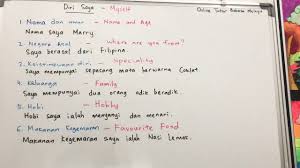 Diri Saya - Myself
Online Tutor Bahasa Melayu
1. Nama dan umur - Name and Age
Nama saya Marry
2. Negara Asal - Where are you from?
Saya berasal dari Filipina
3. Keistimewaan diri - Speciality
Saya mempunyai sepasang mata berwarna Coklat
4. Keluarga - Family
Saya mempunyai dua orang adik beradik.
5. Hobi - Hobby
Hobi saya ialah menyanyi dan menari.
6. Makanan Kegemaran - Favourite Food
Makanan Kegemaran saya ialah Nasi Lemak.